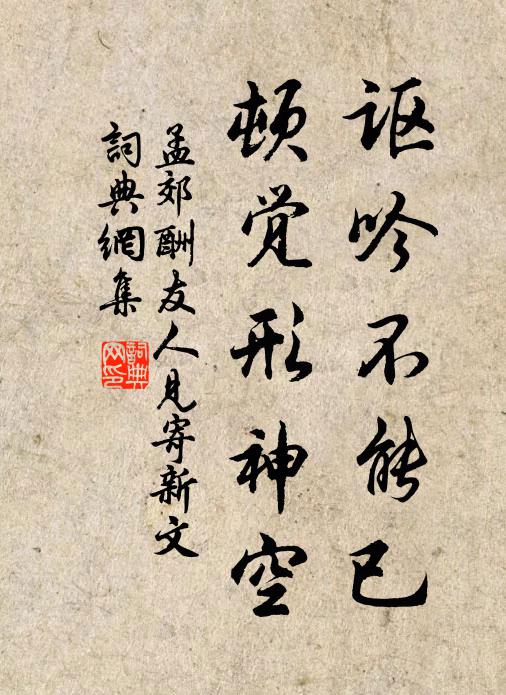 讴吟不能已
顿觉形神空
孟郊酬友人見寄新文
詞典網集
詞典网印